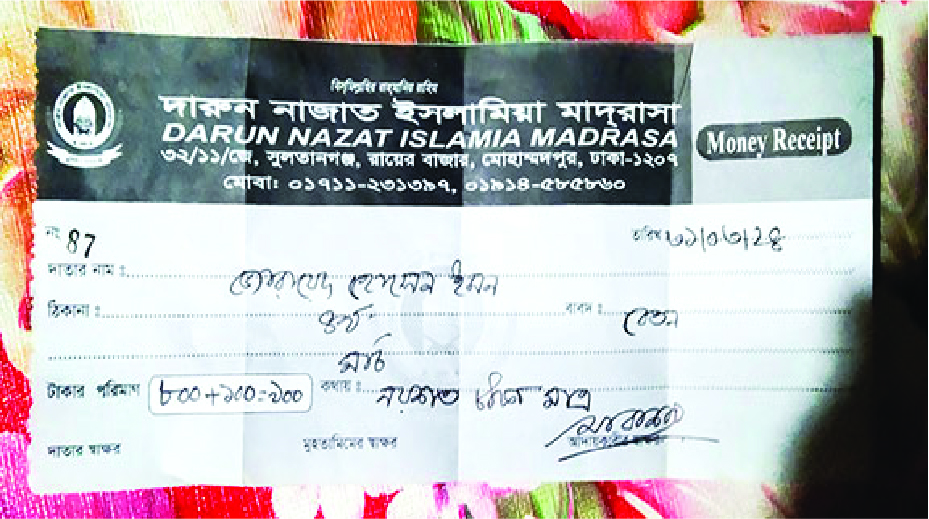 বিসমিল্লাহির রাহমানির রাহিম
দারুন নাজাত ইসলামিয়া মাদ্‌রাসা
DARUN NAZAT ISLAMIA MADRASA
Money Receipt
৩২/১১/জে, সুলতানগঞ্জ, রায়ের বাজার, মোহাম্মদপুর, ঢাকা-১২০৭
মোবা: ০১৭১১-২৩১৩৯৭, ০১৯১৪-৫৮৫৮৬০
নং 87 তারিখ ৩১/০৩/২৪
দাতার নাম : হোসেন ইমন
ঠিকানা : ৪র্থ বাবদ : বেতন
মার্চ
টাকার পরিমাণ ৮০০+১০০=৯০০ কথায় : নয়শত টাকা মাত্র
দাতার স্বাক্ষর মুহতামিমের স্বাক্ষর আদায়কারীর স্বাক্ষর